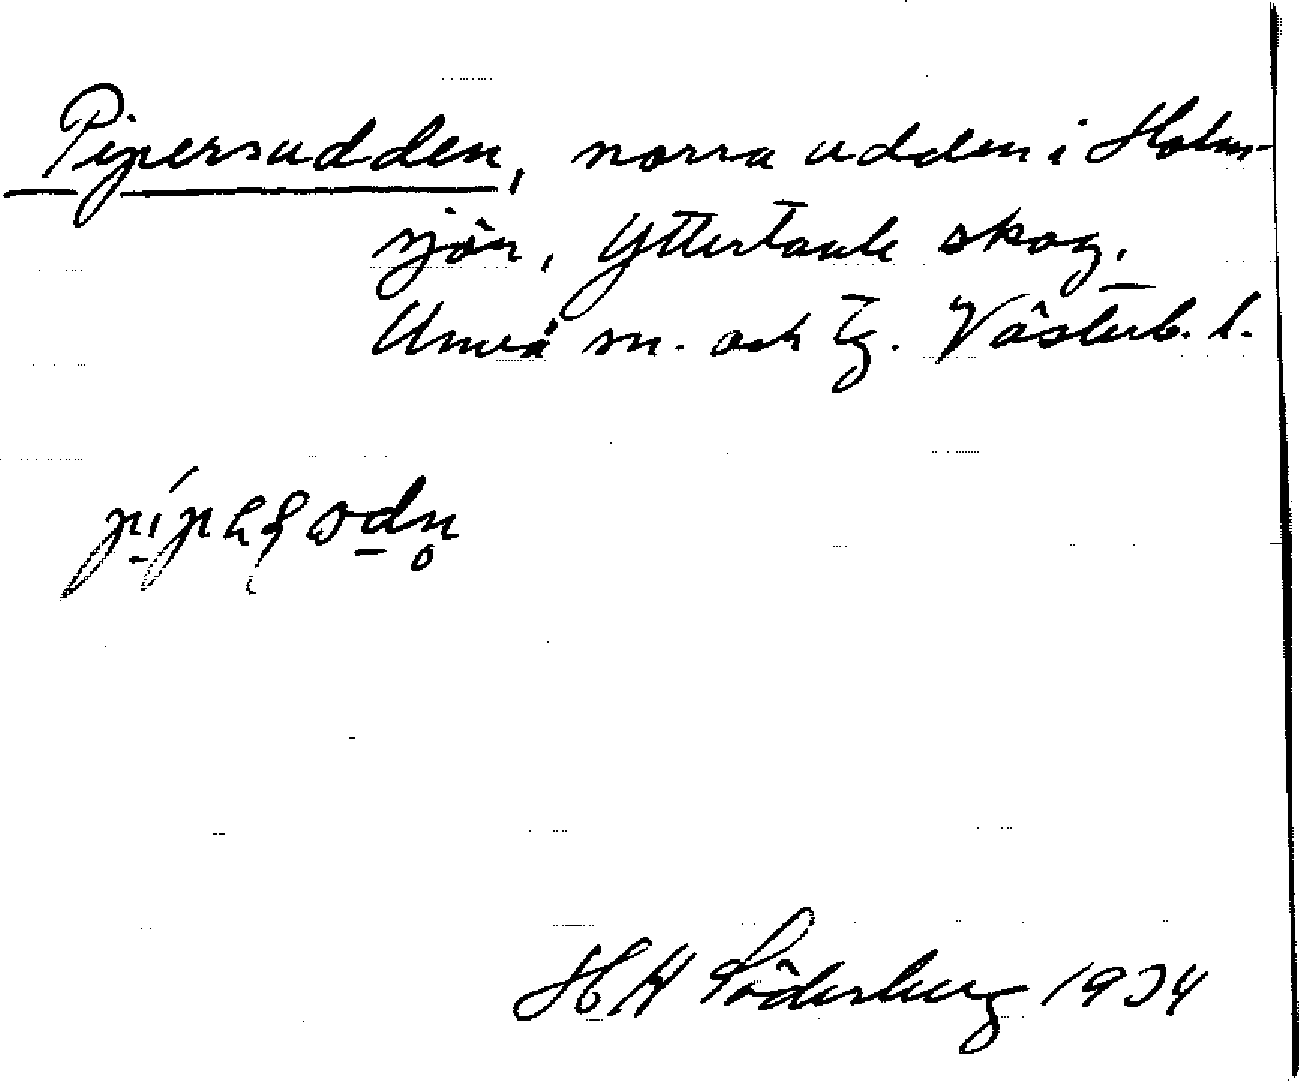 Pipersudden, norra udden i Holm-
sjön, Yttertavle skog,
Umeå sn. och tg. Västerb. l.
H H Söderberg 1934